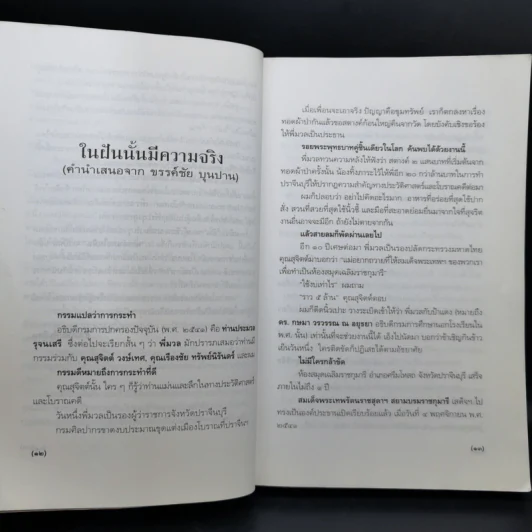 ในฝันนั้นมีความจริง
(คำนำเสนอจาก ขรรค์ชัย บุนปาน)
กรรมแปลว่าการกระทำ
อธิบดีกรมการปกครองปัจจุบัน (พ.ศ. ๒๕๔๑) คือ ท่านประมวล
รุจนเสรี ซึ่งต่อไปจะเรียกสั้น ๆ ว่า พี่มวล มักปรารภเสมอว่าท่านมี
กรรมร่วมกับ คุณสุจิตต์ วงษ์เทศ, คุณเรืองชัย ทรัพย์นิรันดร์ และผม
กรรมดีหมายถึงการกระทำที่ดี
คุณสุจิตต์นั้น ใคร ๆ ก็รู้ว่าท่านแม่นและลึกในทางประวัติศาสตร์
และโบราณคดี
วันหนึ่งพี่มวลเป็นรองผู้ว่าราชการจังหวัดปราจีนบุรี
กรมศิลปากรขาดงบประมาณขุดแต่งเมืองโบราณที่ปราจีนฯ
(๑๒)
เมื่อเพื่อนจะเอาจริง ปัญญาคือขุมทรัพย์ เราก็ตกลงหาเรื่อง
ทอดผ้าป่ากันแล้วขอสตางค์ก้อนใหญ่คืนจากวัด โดยบังคับเชิงขอร้อง
ให้พี่มวลเป็นประธาน
รอยพระพุทธบาทคู่ชิ้นเดียวในโลก ค้นพบได้ด้วยงานนี้
พี่มวลทวนความหลังให้ฟังว่า สตางค์ ๒ แสนบาทที่เริ่มต้นจาก
ทอดผ้าป่าครั้งนั้น น้องทั้งภาระไว้ให้พี่อีก ๒๐ กว่าล้านบาทในการทำ
ปราจีนบุรีให้ปรากฏความสำคัญทางประวัติศาสตร์และโบราณคดีต่อมา
ผมก็ปลอบว่า อย่าไปคิดอะไรมาก อาหารที่อร่อยที่สุดใช้ปาก
สั่ง สวนที่สวยที่สุดใช้นิ้วชี้ และมือที่สะอาดย่อมยื่นมาจากใจที่สุจริต
งานอื่นอาจจะมีอีก ถ้ายังไม่ตายจากกัน
แล้วสายลมก็พัดผ่านเลยไป
อีก ๑๐ ปีเศษต่อมา พี่มวลเป็นรองปลัดกระทรวงมหาดไทย
คุณสุจิตต์ผ่านมาบอกว่า "แม่อยากถวายที่ให้สมเด็จพระเทพฯ ของพวกเรา
เพื่อทำเป็นห้องสมุดเฉลิมราชกุมารี"
"ใช้งบเท่าไร" ผมถาม
"ราว ๕ ล้าน" คุณสุจิตต์ตอบ
ผมก็ดีดนิ้วเปาะ วางระเบิดเข้าให้ว่า พี่มวลกับป้าแดง (หมายถึง
ดร. กษมา วรวรรณ ณ อยุธยา อธิบดีกรรมการศึกษานอกโรงเรียนใน
พ.ศ. นั้น) เท่านั้นที่จะช่วยงานนี้ได้ เอ็งไปนัดมา บอกว่าข้าเชิญกินข้าว
เย็นวันหนึ่ง ใครติดขัดก็ปฏิเสธได้ตามอัธยาศัย
ไม่มีใครกล้าขัด
ห้องสมุดเฉลิมราชกุมารี อำเภอศรีมโหสถ จังหวัดปราจีนบุรี เสร็จ
ภายในไม่ถึง ๑ ปี
สมเด็จพระเทพรัตนราชสุดาฯ สยามบรมราชกุมารี เสด็จฯ ไป
ทรงเป็นองค์ประธานเปิดเรียบร้อยแล้ว เมื่อวันที่ ๔ พฤศจิกายน พ.ศ.
๒๕๔๑
(๑๓)